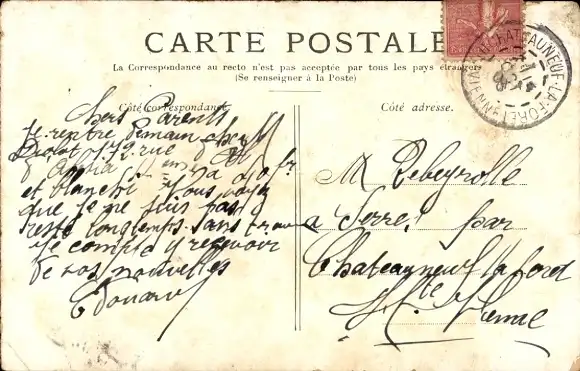 CARTE POSTALE
La Correspondance au recto n'est pas acceptée par tous les pays étrangers
(Se renseigner à la Poste)
Côté correspondance
Côté adresse.
Chers Parents
Je rentre Demain chez M
72 rue
et blanchi Vous voyez
que je ne suis pas
resté longtemps sans travail
Je compte y recevoir
De vos nouvelles
Edouard
M Rebeyrolle
a Serre par
Chateauneuf la foret
Hte Vienne
CHATEAUNEUF-LA-FORET